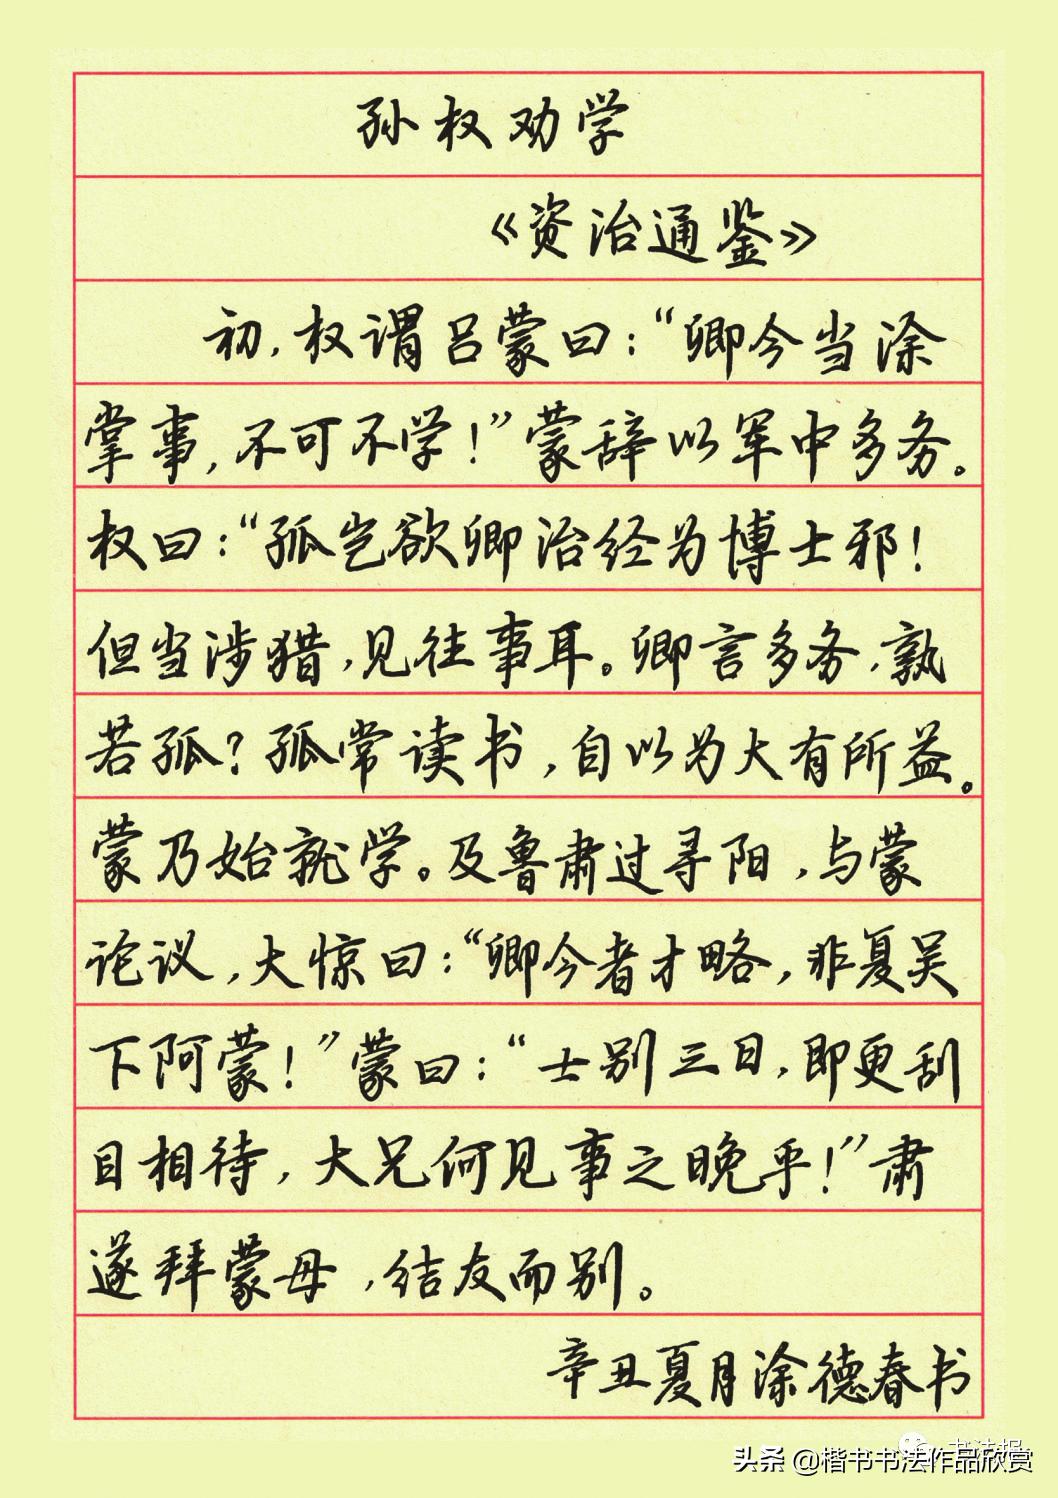 孙权劝学
《资治通鉴》
初，权谓吕蒙曰：“卿今当涂
掌事，不可不学！”蒙辞以军中多务。
权曰：“孤岂欲卿治经为博士邪！
但当涉猎，见往事耳。卿言多务，孰
若孤？孤常读书，自以为大有所益。
蒙乃始就学。及鲁肃过寻阳，与蒙
论议，大惊曰：“卿今者才略，非复吴
下阿蒙！”蒙曰：“士别三日，即更刮
目相待，大兄何见事之晚乎！”肃
遂拜蒙母，结友而别。
辛丑夏月涂德春书
书法报
头条 @楷书书法作品欣赏